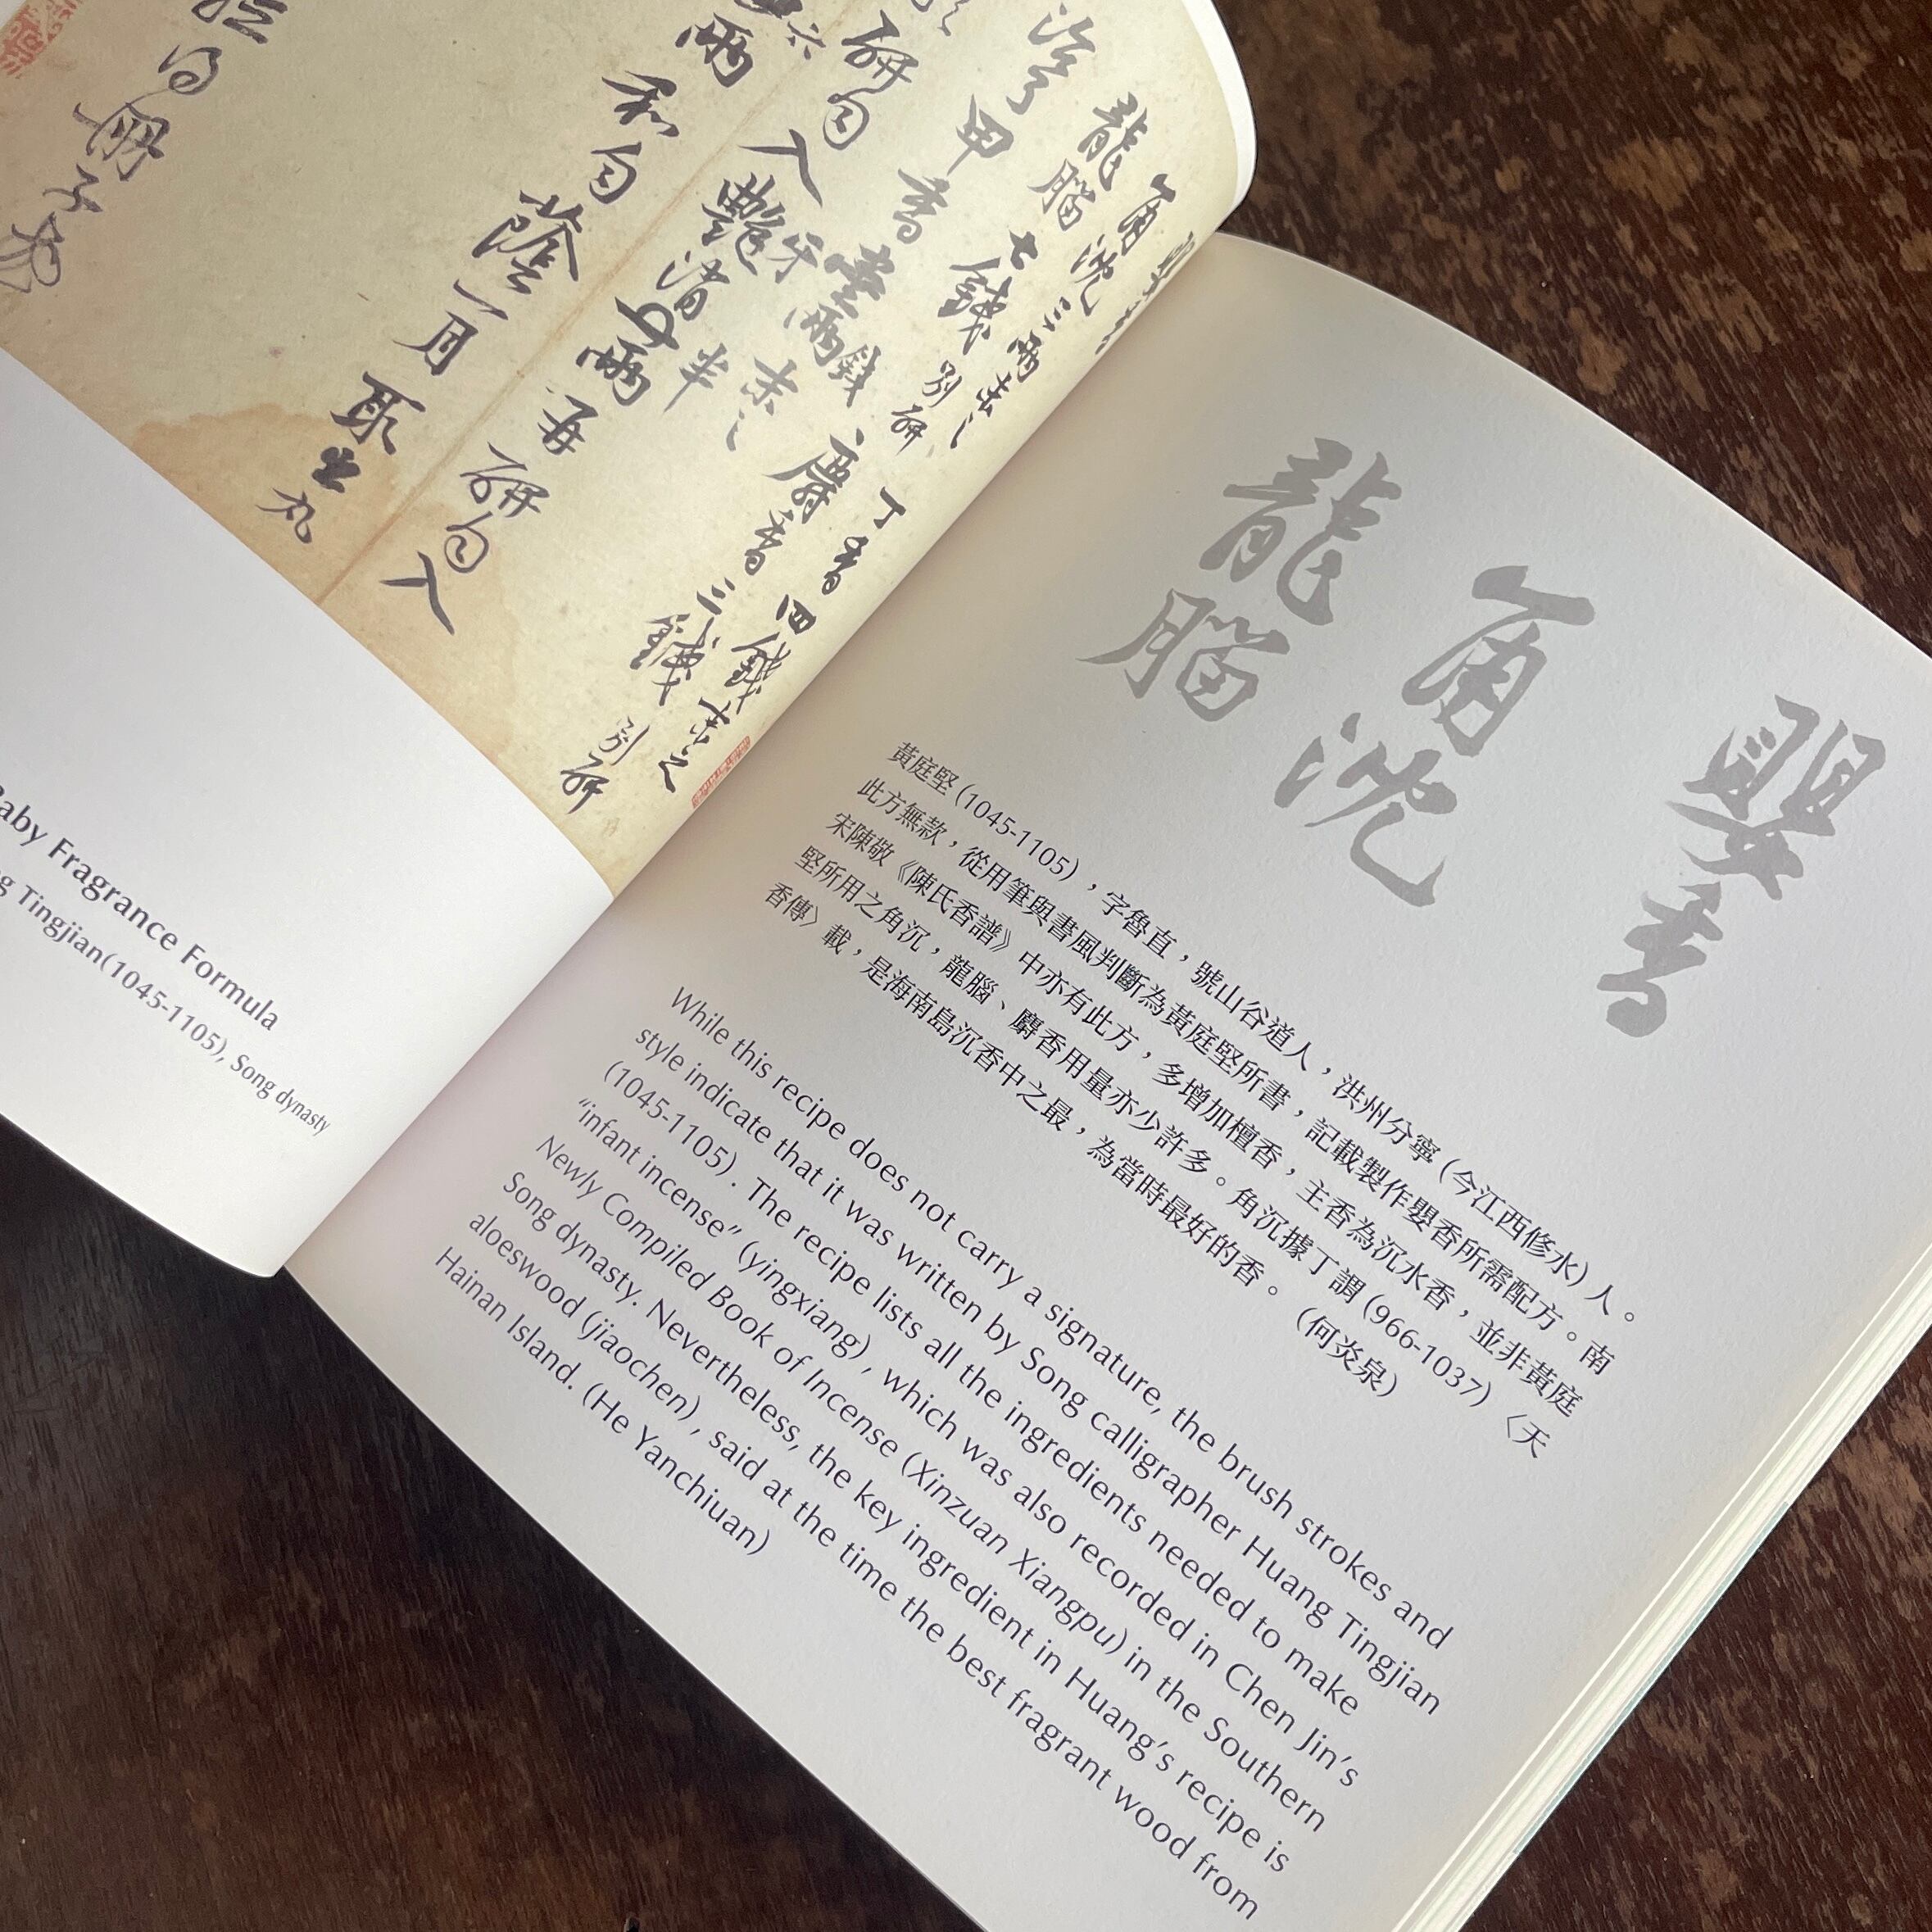 角沈三兩末之 丁香四錢末之
龍腦七錢別研 麝香三錢別研
甲香壹錢末之
研勻入牙消半兩再研勻入
六兩和勻蔭一月取出丸
得冊子
Baby Fragrance Formula
g Tingjian(1045-1105), Song dynasty
嬰香
角沈
龍腦
黃庭堅 (1045-1105)，字魯直，號山谷道人，洪州分寧 (今江西修水) 人。
此方無款，從用筆與書風判斷為黃庭堅所書，記載製作嬰香所需配方。南
宋陳敬《陳氏香譜》中亦有此方，多增加檀香，主香為沉水香，並非黃庭
堅所用之角沉，龍腦、麝香用量亦少許多。角沉據丁謂 (966-1037)〈天
香傳〉載，是海南島沉香中之最，為當時最好的香。（何炎泉）
While this recipe does not carry a signature, the brush strokes and
style indicate that it was written by Song calligrapher Huang Tingjian
(1045-1105) . The recipe lists all the ingredients needed to make
“infant incense” (yingxiang) , which was also recorded in Chen Jin’s
Newly Compiled Book of Incense (Xinzuan Xiangpu) in the Southern
Song dynasty. Nevertheless, the key ingredient in Huang’s recipe is
aloeswood (jiaochen) , said at the time the best fragrant wood from
Hainan Island. (He Yanchiuan)